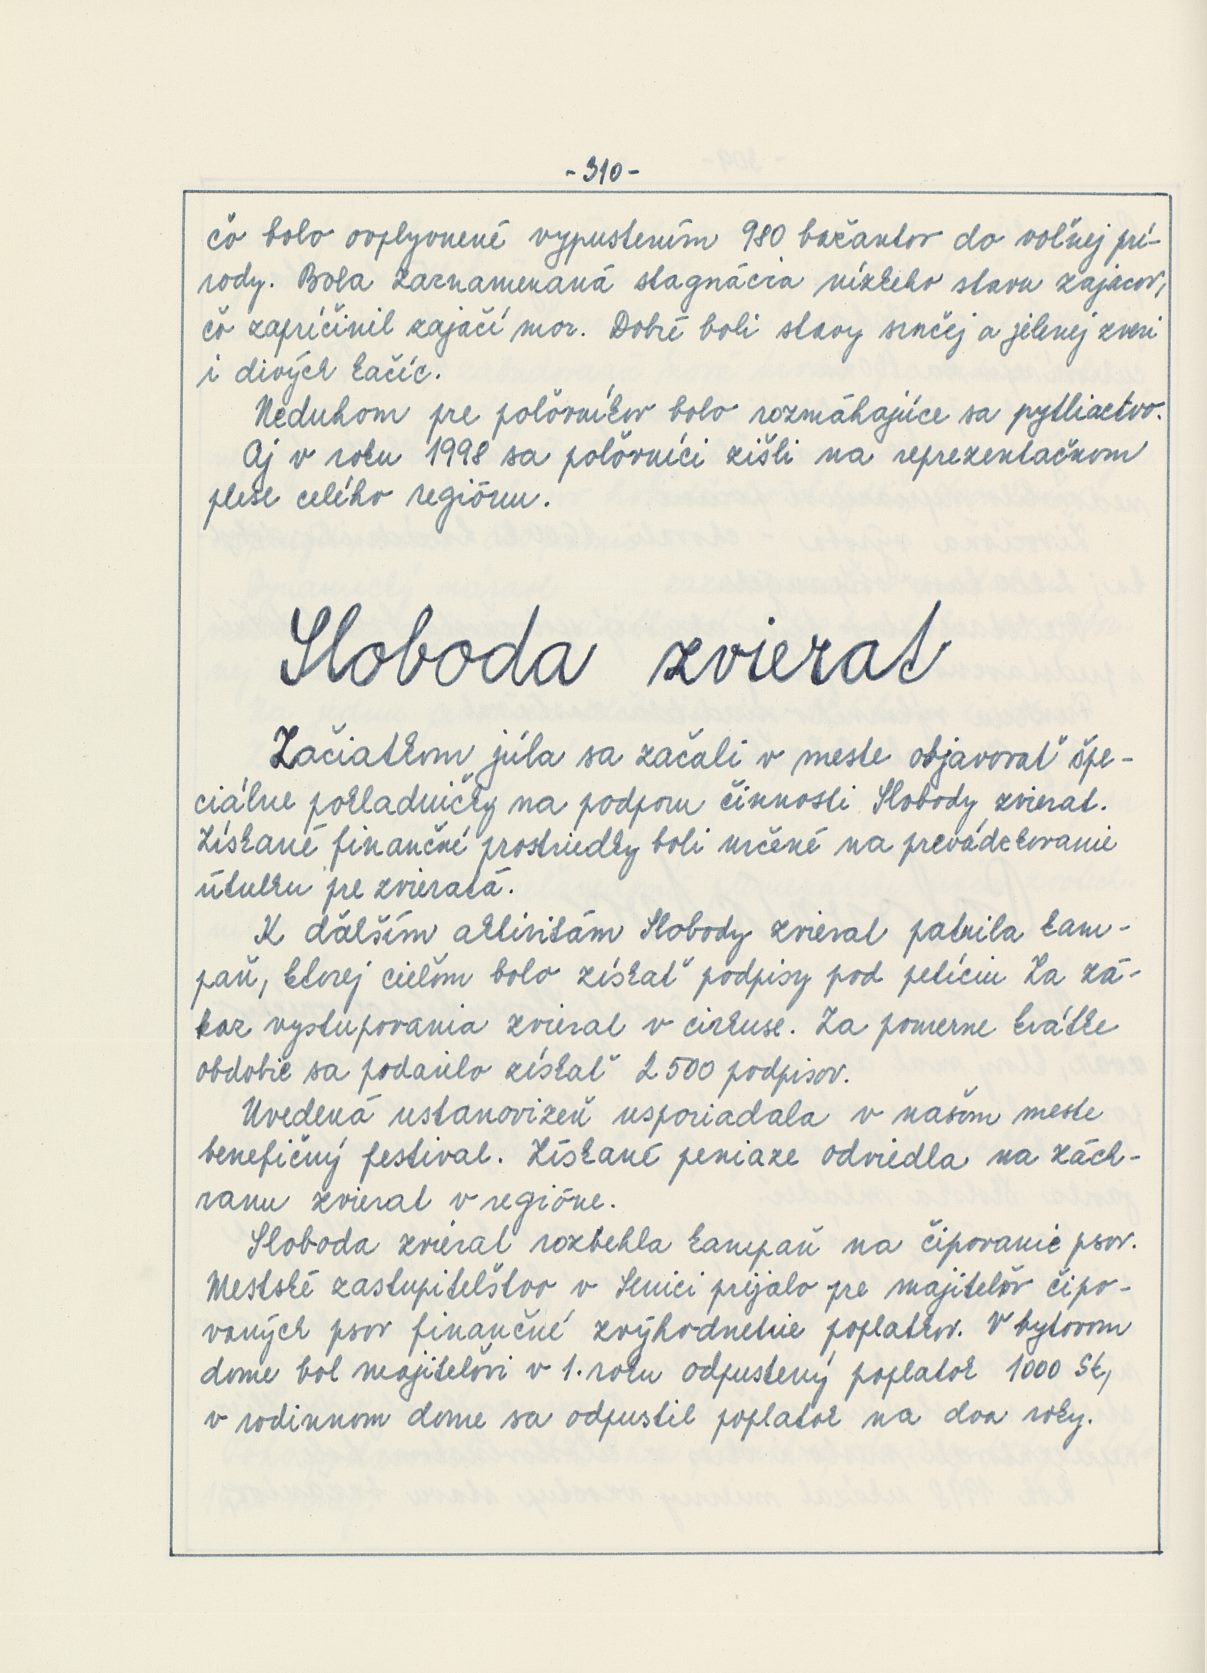 - 310 -
čo bolo ovplyvnené vypustením 980 bažantov do voľnej prí-
rody. Bola zaznamenaná stagnácia nízkeho stavu zajacov,
čo zapríčinil zajačí mor. Dobré boli stavy srnčej a jelenej zveri
i divých kačíc.
Neduhom pre poľovníkov bolo rozmáhajúce sa pytliactvo.
Aj v roku 1998 sa poľovníci zišli na reprezentačnom
plese celého regiónu.
Sloboda zvierat
Začiatkom júla sa začali v meste objavovať špe-
ciálne pokladničky na podporu činnosti Slobody zvierat.
Získané finančné prostriedky boli určené na prevádzkovanie
útulku pre zvieratá.
K ďalším aktivitám Slobody zvierat patrila kam-
paň, ktorej cieľom bolo získať podpisy pod petíciu Za zá-
kaz vystupovania zvierat v cirkuse. Za pomerne krátke
obdobie sa podarilo získať 2 500 podpisov.
Uvedená ustanovizeň usporiadala v našom meste
benefičný festival. Získané peniaze odviedla na zách-
ranu zvierat v regióne.
Sloboda zvierat rozbehla kampaň na čipovanie psov.
Mestské zastupiteľstvo v Senici prijalo pre majiteľov čipo-
vaných psov finančné zvýhodnenie poplatkov. V bytovom
dome bol majiteľovi v 1. roku odpustený poplatok 1000 Sk,
v rodinnom dome sa odpustil poplatok na dva roky.